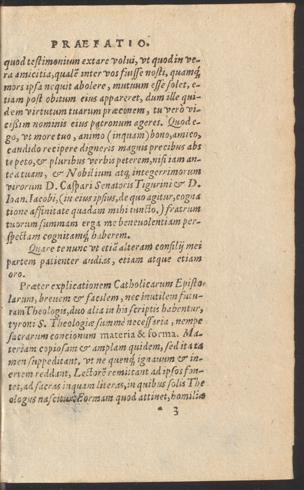 PRAEFATIO.
quod testimonium extare volui, vt quod in ve-
ra amicitia, qualẽ inter vos fuisse nosti, quamq́;
mors ipsa nequit abolere, mutuum esse solet, e-
tiam post obitum eius appareret, dum ille qui-
dem virtutum tuarum præconem, tu verò vi-
cissim nominis eius patronum ageres. Quod e-
go, vt more tuo, animo (inquam) bono, amico,
candido recipere digneris magus precibus abs
te peto, & pluribus verbis peterem, nisi iam an-
tea tuam, & Nobilium atq; integerrimorum
virorum D. Caspari Senatoris Tigurini & D.
Ioan. Iacobi, (in eius ipsius, de quo agitur, cogna
tione affinitate quadam mihi iuncto,) fratrum
tuorum summam erga me beneuolentiam per-
spectam cognitamq́; haberem.
Quare te nunc vt etiã alteram consilij mei
partem patienter audias, etiam atque etiam
oro.
Præter explicationem Catholicarum Episto-
larum, breuem & facilem, nec inutilem futu-
ram Theologis, duo alia in his scriptis habentur,
tyroni S. Theologiæ summè necessaria, nempe
sacrarum concionum materia & forma. Ma-
teriam copiosam & amplam quidem, sed ita ta
men suppeditant, vt ne quenq́; ignauum & in-
ertem reddant, Lectorẽ remittant ad ipsos fon-
tes, ad sacras inquam literas, in quibus solis The
ologus nascitur. Formam quod attinet, homiliæ
* 3